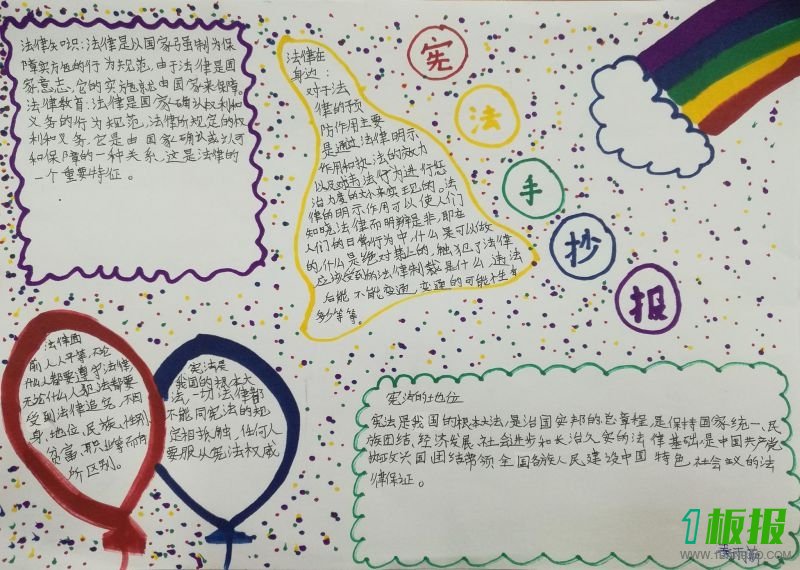 宪
法
手
抄
报
法律知识:法律是以国家强制为保
障实施的行为规范,由于法律是国
家意志,它的实施就由国家来保障。
法律教育:法律是国家确认权利和
义务的行为规范,法律所规定的权
利和义务,它是由国家确认或认可
和保障的一种关系,这是法律的
一个重要特征。
法律在
身边:
对于法
律的预
防作用主要
是通过法律明示
作用和执法的效力
以及对违法行为进行惩
治力度的大小来实现的。法
律的明示作用可以使人们
知晓法律而明辨是非,即在
人们的日常行为中,什么是可以做
的,什么是绝对禁止的,触犯了法律
应该受到的法律制裁是什么,违法
后能不能变通,变通的可能性有
多少等等。
法律面
前人人平等,不论
什么人都要遵守法律,
无论什么人犯法都要
受到法律追究,不因
身、地位、民族、性别、
贫富、职业等而有
所区别。
宪法是
我国的根本大
法,一切法律都
不能同宪法的规
定相抵触,任何人
要服从宪法权威
宪法的地位
宪法是我国的根本大法,是治国安邦的总章程,是保持国家统一、民
族团结、经济发展、社会进步和长治久安的法律基础,是中国共产党
执政兴国、团结带领全国各族人民建设中国特色社会主义的法
律保证。
1板报